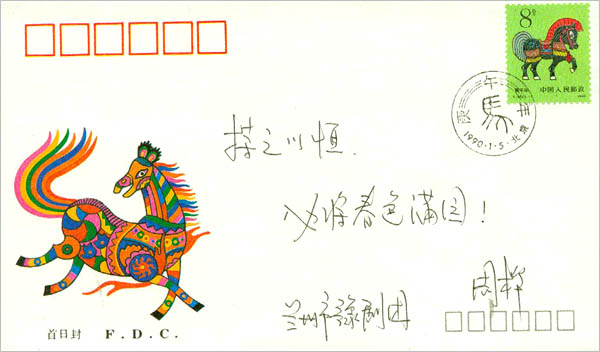 8分
庚午年
中国人民邮政
庚午年
馬
1990·1·5·北京
持之以恒.
必将春色满园!
周
兰州市豫剧团
首日封 F.D.C.